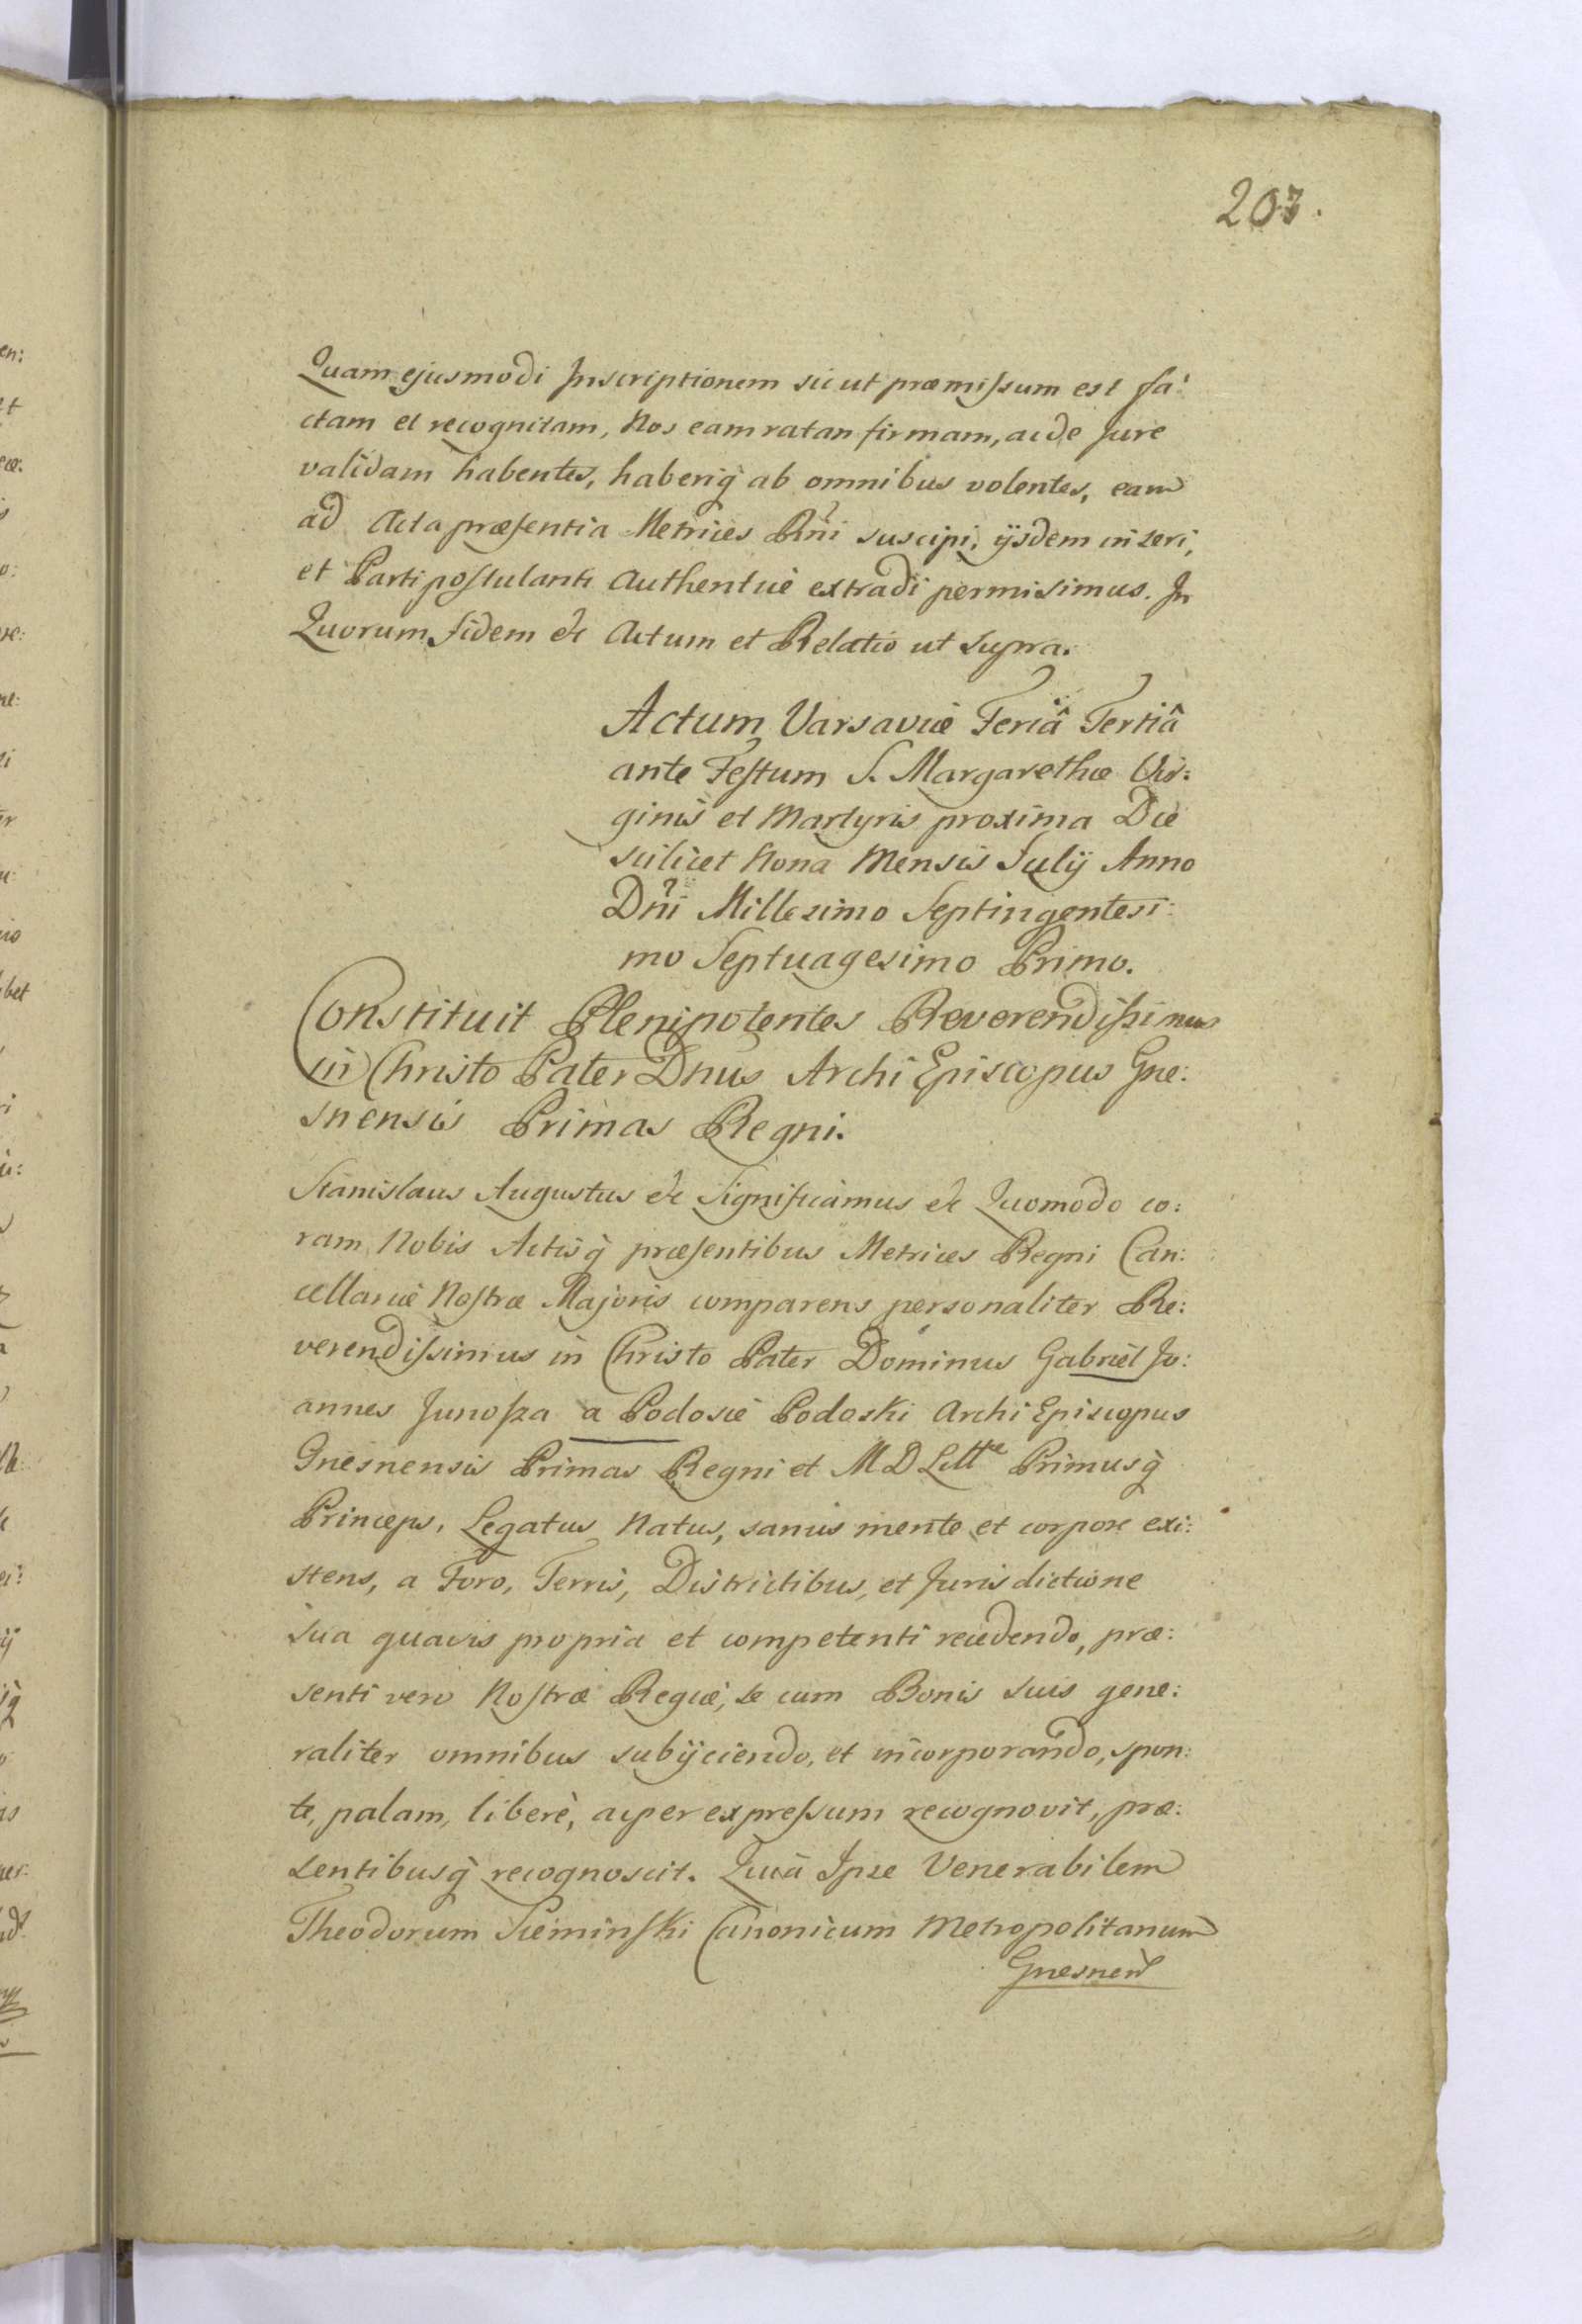 203.
Quam ejusmodi Inscriptionem sicut præmissum est fa:
ctam et recognitam, Nos eam ratan firmam, ac de Jure
validam habentes, haberiq̀ ab omnibus volentes, eam
ad Acta præsentia Metrices Rñi suscipi, ijsdem inseri,
et Parti postulanti Authenticè extradi permisimus. In
Quorum fidem &c Actum et Relatio ut supra.
Actum Varsaviæ Feriâ Tertiâ
ante Festum S. Margarethæ Vir:
ginis et Martyris proxima Die
scilicet Nona Mensis Julij Anno
Dñi Millesimo Septingentesi:
mo Septuagesimo Primo.
Constituit Plenipotentes Reverendissimus
in Christo Pater Dnus Archi Episcopus Gne:
snensis Primas Regni.
Stanislaus Augustus &c Significamus &c Quomodo co:
ram Nobis Actisq̀ præsentibus Metrices Regni Can:
cellariæ Nostræ Majoris comparens personaliter Re:
verendissimus in Christo Pater Dominus Gabriel Jo:
annes Junosza a Podosie Podoski Archi Episcopus
Gnesnensis Primas Regni et M D Littæ Primusq̀
Princeps, Legatus Natus, sanus mente et corpore exi:
stens, a Foro, Terris, Districtibus, et Jurisdictione
sua quavis propria et competenti recedendo, præ:
senti vero Nostræ Regiæ, se cum Bonis suis gene:
raliter omnibus subijciendo, et incorporando, spon:
te, palam, liberè, ac per expressum recognovit, præ:
sentibusq̀ recognoscit. Quia Ipse Venerabilem
Theodorum Sieminski Canonicum Metropolitanum
Gnesnen̄